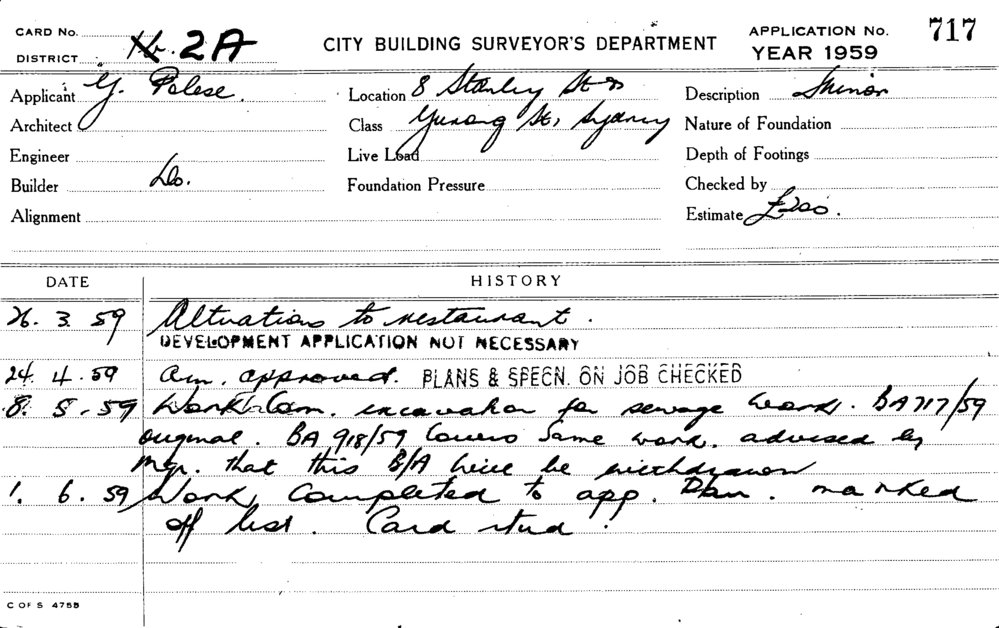 CARD No.
DISTRICT 2A
CITY BUILDING SURVEYOR'S DEPARTMENT
APPLICATION No. 717
YEAR 1959
Applicant G. Polese. Location 8 Stanley St & Description Minor
Architect Class Yurong St, Sydney Nature of Foundation
Engineer Live Load Depth of Footings
Builder Do. Foundation Pressure Checked by
Alignment Estimate
DATE HISTORY
26. 3. 59 Alterations to restaurant.
DEVELOPMENT APPLICATION NOT NECESSARY
24. 4. 59 am. approved. PLANS & SPECN. ON JOB CHECKED
8. 5. 59 Work Com. excavation for sewage work. BA 717/59
original. BA 918/59 covers same work. advised by
Mgr. that this B/A will be withdrawn
1. 6. 59 Work, Completed to app. Plan. marked
off list. Card
C OF S 4755